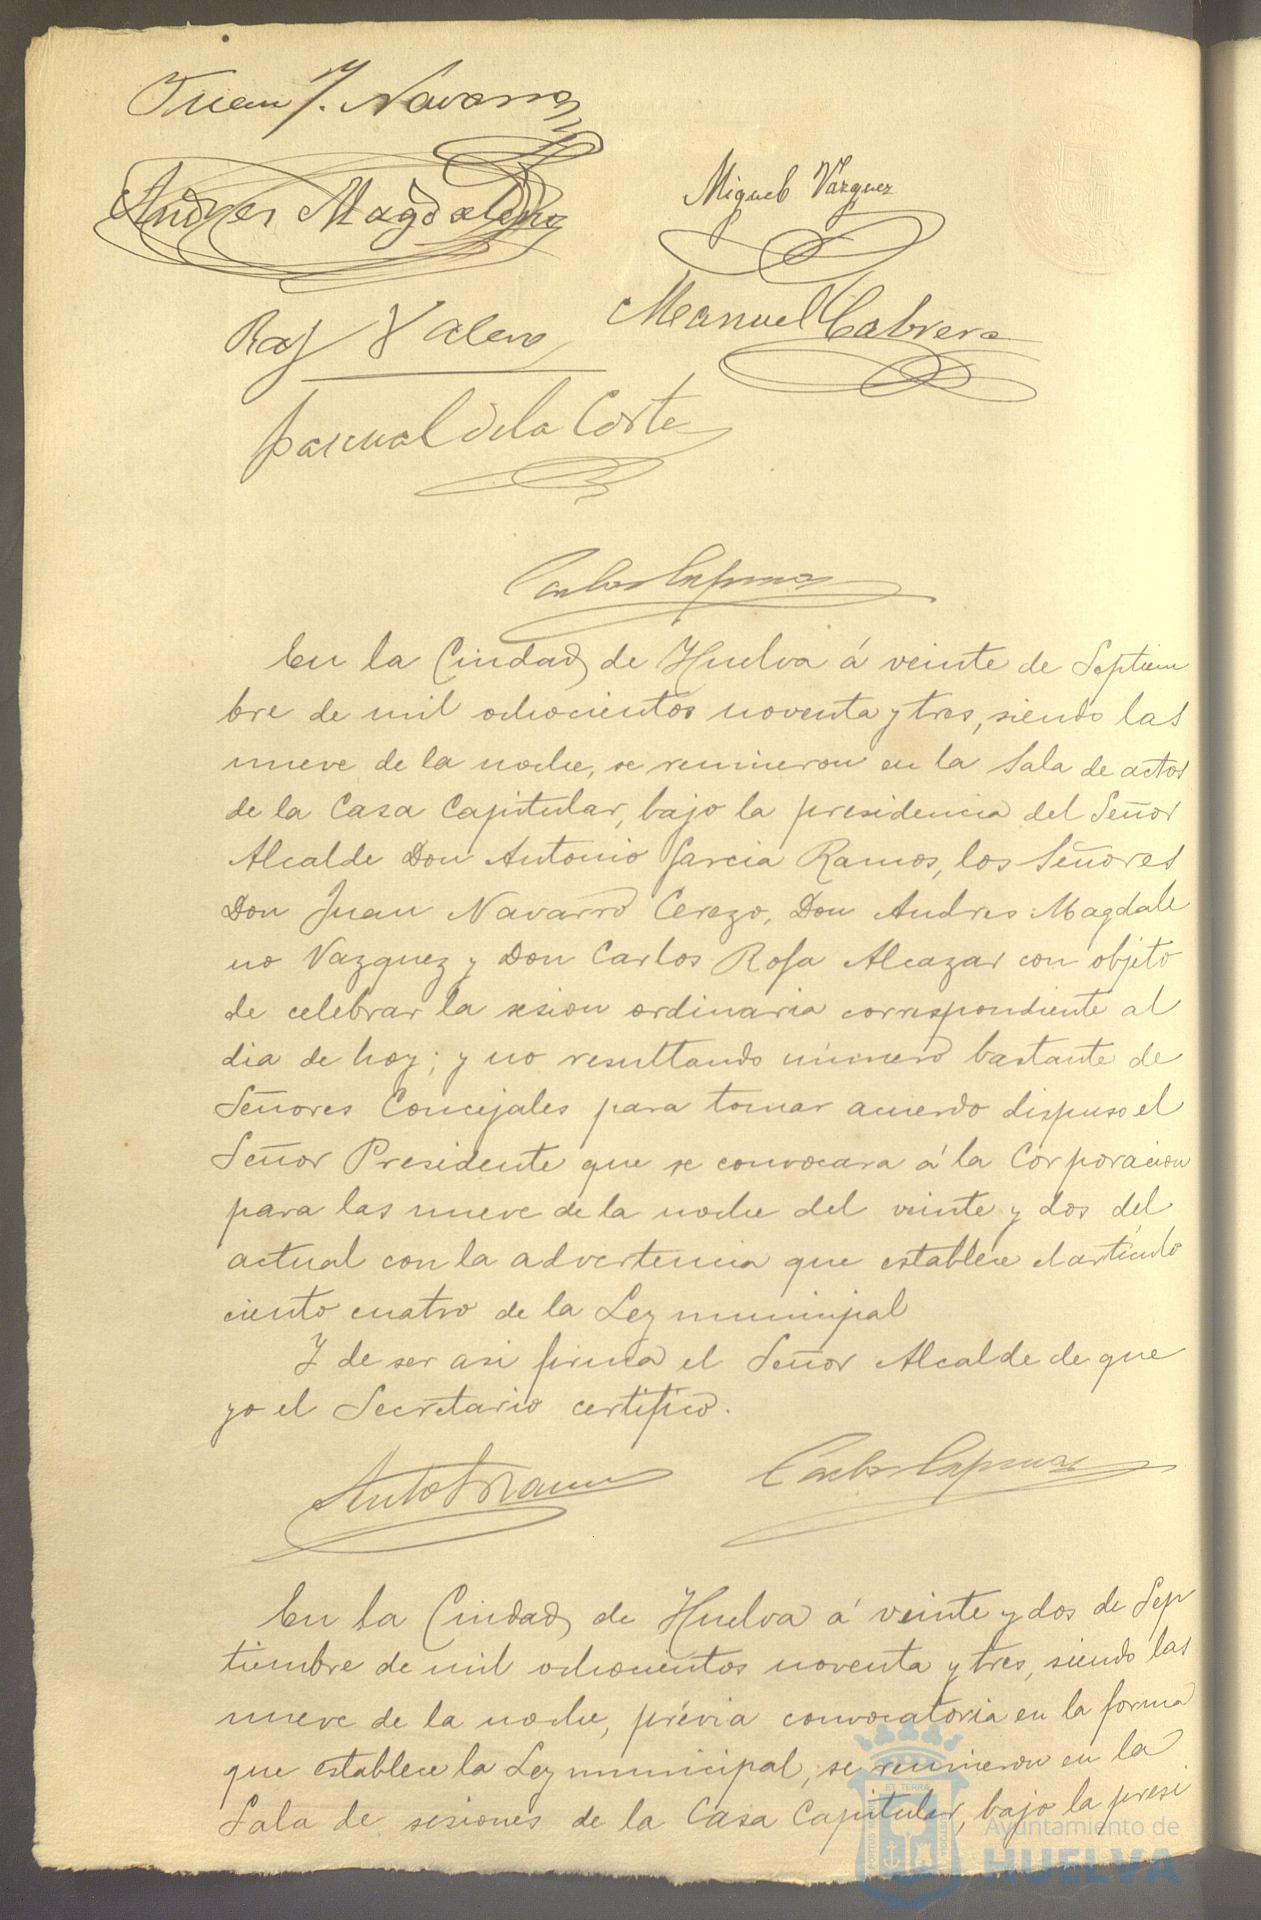 Juan J. Navarro
Andres Magdaleno
Miguel Vazquez
Raf Valero
Manuel Cabrera
Pascual de la Corte
Carlos
En la Ciudad de Huelva á veinte de Septiem
bre de mil ochocientos noventa y tres, siendo las
nueve de la noche, se reunieron en la Sala de actos
de la Casa Capitular, bajo la presidencia del Señor
Alcalde Don Antonio Garcia Ramos, los Señores
Don Juan Navarro Cerezo, Don Andres Magdale
no Vazquez y Don Carlos Rofa Alcazar con objeto
de celebrar la sesion ordinaria correspondiente al
dia de hoy; y no resultando número bastante de
Señores Concejales para tomar acuerdo dispuso el
Señor Presidente que se convocara á la Corporacion
para las nueve de la noche del veinte y dos del
actual con la advertencia que establece el artículo
ciento cuatro de la Ley municipal
Y de ser asi firma el Señor Alcalde de que
yo el Secretario certifico.
Antº G Ramos
Carlos
En la Ciudad de Huelva á veinte y dos de Sep
tiembre de mil ochocientos noventa y tres, siendo las
nueve de la noche, prévia convocatoria en la forma
que establece la Ley municipal, se reunieron en la
Sala de sesiones de la Casa Capitular, bajo la presi
Ayuntamiento de
HUELVA